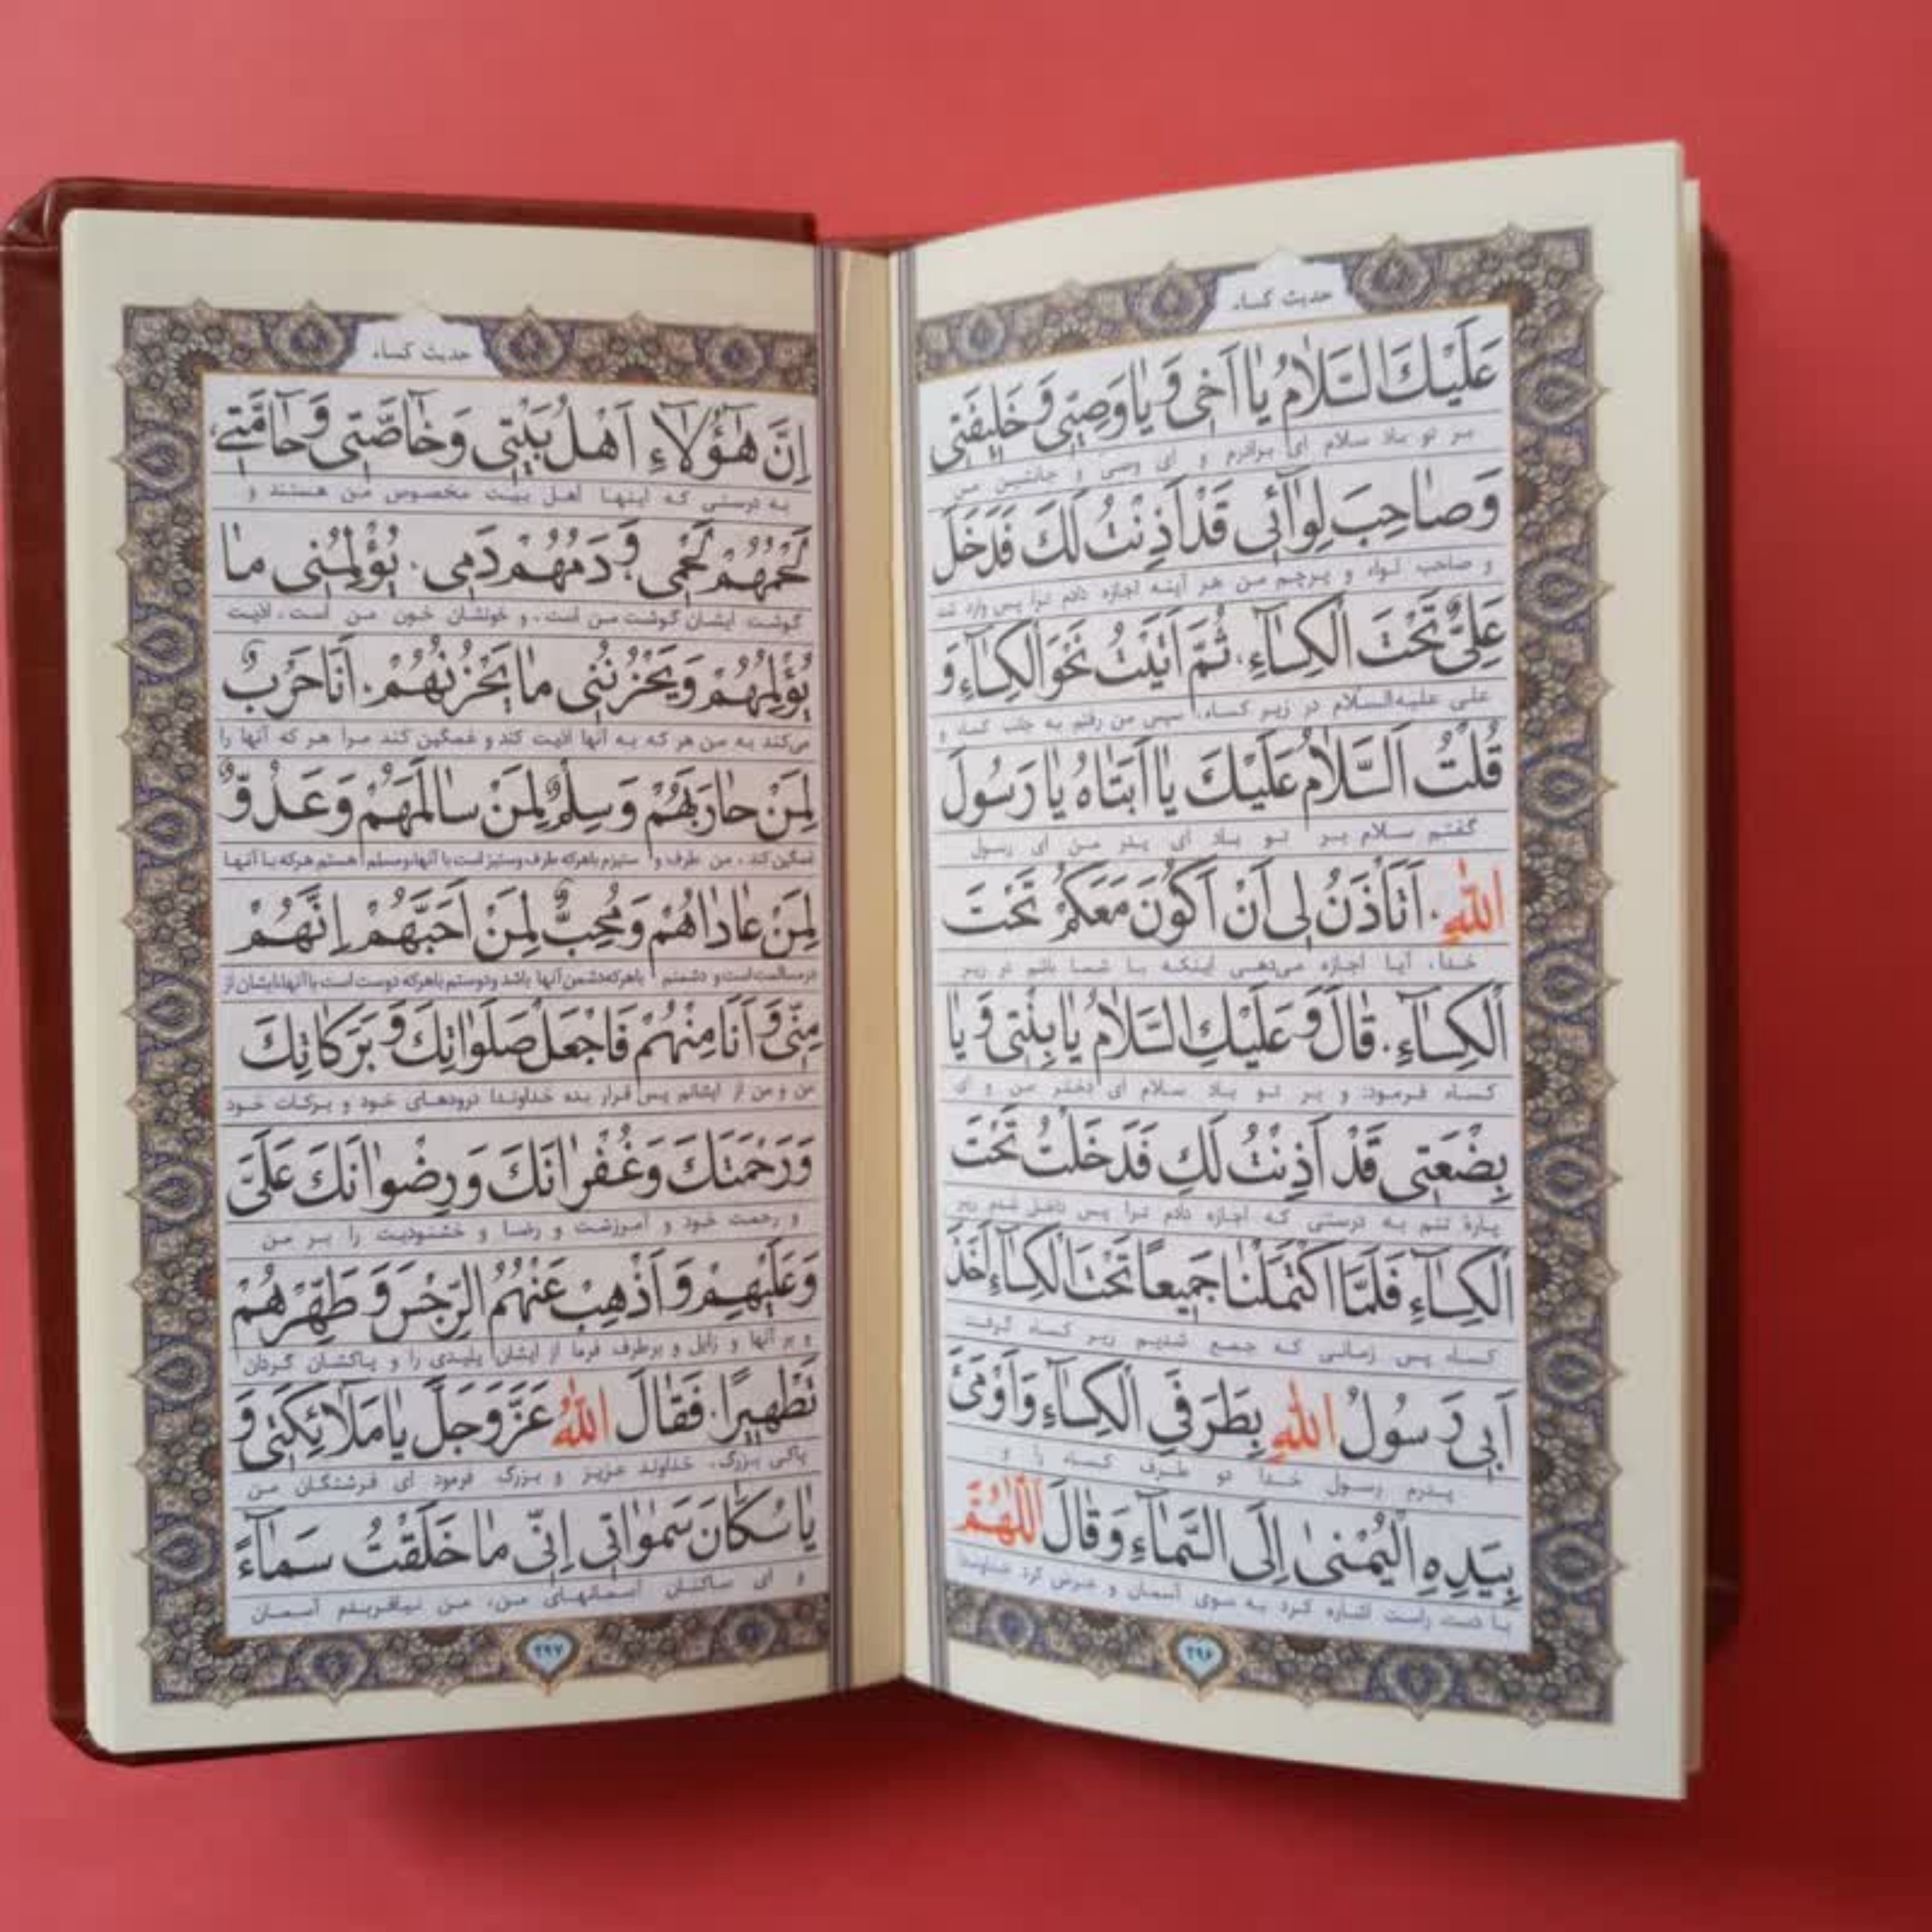 حدیث کساء
عَلَیْكَ السَّلامُ یا اَخی وَ یا وَصِیّی وَ خَلیفَتی
بر تو باد سلام ای برادرم و ای وصی و جانشین من
وَ صاحِبَ لِوآئی قَدْ اَذِنْتُ لَكَ فَدَخَلَ
و صاحب لواء و پرچم من هر آینه اجازه دادم ترا پس وارد شد
عَلِیٌّ تَحْتَ الْکِسآءِ. ثُمَّ اَتَیْتُ نَحْوَ الْکِسآءِ وَ
علی علیه‌السلام در زیر کساء، سپس من رفتم به جانب کساء و
قُلْتُ اَلسَّلامُ عَلَیْكَ یا اَبَتاهُ یا رَسُولَ
گفتم سلام بر تو باد ای پدر من ای رسول
اللهِ. اَتَأْذَنُ لی اَنْ اَکُونَ مَعَکُمْ تَحْتَ
خدا، آیا اجازه می‌دهی اینکه با شما باشم در زیر
الْکِسآءِ. قالَ وَ عَلَیْكِ السَّلامُ یا بِنْتی وَ یا
کساء فرمود: و بر تو باد سلام ای دختر من و ای
بِضْعَتی قَدْ اَذِنْتُ لَكِ فَدَخَلْتُ تَحْتَ
پارهٔ تنم به درستی که اجازه دادم ترا پس داخل شدم زیر
الْکِسآءِ فَلَمَّا اکْتَمَلْنا جَمیعاً تَحْتَ الْکِسآءِ اَخَذَ
کساء پس زمانی که جمع شدیم زیر کساء گرفت
اَبی رَسُولُ اللهِ بِطَرَفَیِ الْکِسآءِ وَ اَوْمَئَ
پدرم رسول خدا دو طرف کساء را و
بِیَدِهِ الْیُمْنی اِلَی السَّمآءِ وَ قالَ اَللّهُمَّ
با دست راست اشاره کرد به سوی آسمان و عرض کرد خداوندا
۲۹۶
حدیث کساء
اِنَّ هٰؤُلآءِ اَهْلُ بَیْتی وَ خآصَّتی وَ حآمَّتی،
به درستی که اینها اهل بیت مخصوص من هستند و
لَحْمُهُمْ لَحْمی وَ دَمُهُمْ دَمی. یُؤْلِمُنی ما
گوشت ایشان گوشت من است، و خونشان خون من است، اذیت
یُؤْلِمُهُمْ وَ یَحْزُنُنی ما یَحْزُنُهُمْ. اَنَا حَرْبٌ
می‌کند به من هر که به آنها اذیت کند و غمگین کند مرا هر که آنها را
لِمَنْ حارَبَهُمْ وَ سِلْمٌ لِمَنْ سالَمَهُمْ وَ عَدُوٌّ
غمگین کند، من طرف و ستیزم باهرکه طرف وستیز است با آنها، ومسلم هستم هرکه با آنها
لِمَنْ عاداهُمْ وَ مُحِبٌّ لِمَنْ اَحَبَّهُمْ اِنَّهُمْ
درمسالمت است و دشمنم باهرکه دشمن آنها باشد ودوستم باهرکه دوست است با آنها، ایشان از
مِنّی وَ اَنَا مِنْهُمْ فَاجْعَلْ صَلَواتِكَ وَ بَرَکاتِكَ
من و من از ایشانم پس قرار بده خداوندا درودهای خود و برکات خود
وَ رَحْمَتَكَ وَ غُفْرانَكَ وَ رِضْوانَكَ عَلَیَّ
و رحمت خود و آمرزشت و رضا و خشنودیت را بر من
وَ عَلَیْهِمْ وَ اَذْهِبْ عَنْهُمُ الرِّجْسَ وَ طَهِّرْهُمْ
و بر آنها و زایل و برطرف فرما از ایشان پلیدی را و پاکشان گردان
تَطْهیرًا. فَقالَ اللهُ عَزَّوَجَلَّ یا مَلآئِکَتی وَ
پاکی بزرگ، خداوند عزیز و بزرگ فرمود ای فرشتگان من
یا سُکّانَ سَمٰواتی اِنّی ما خَلَقْتُ سَمآءً
و ای ساکنان آسمانهای من، من نیافریدم آسمان
۲۹۷